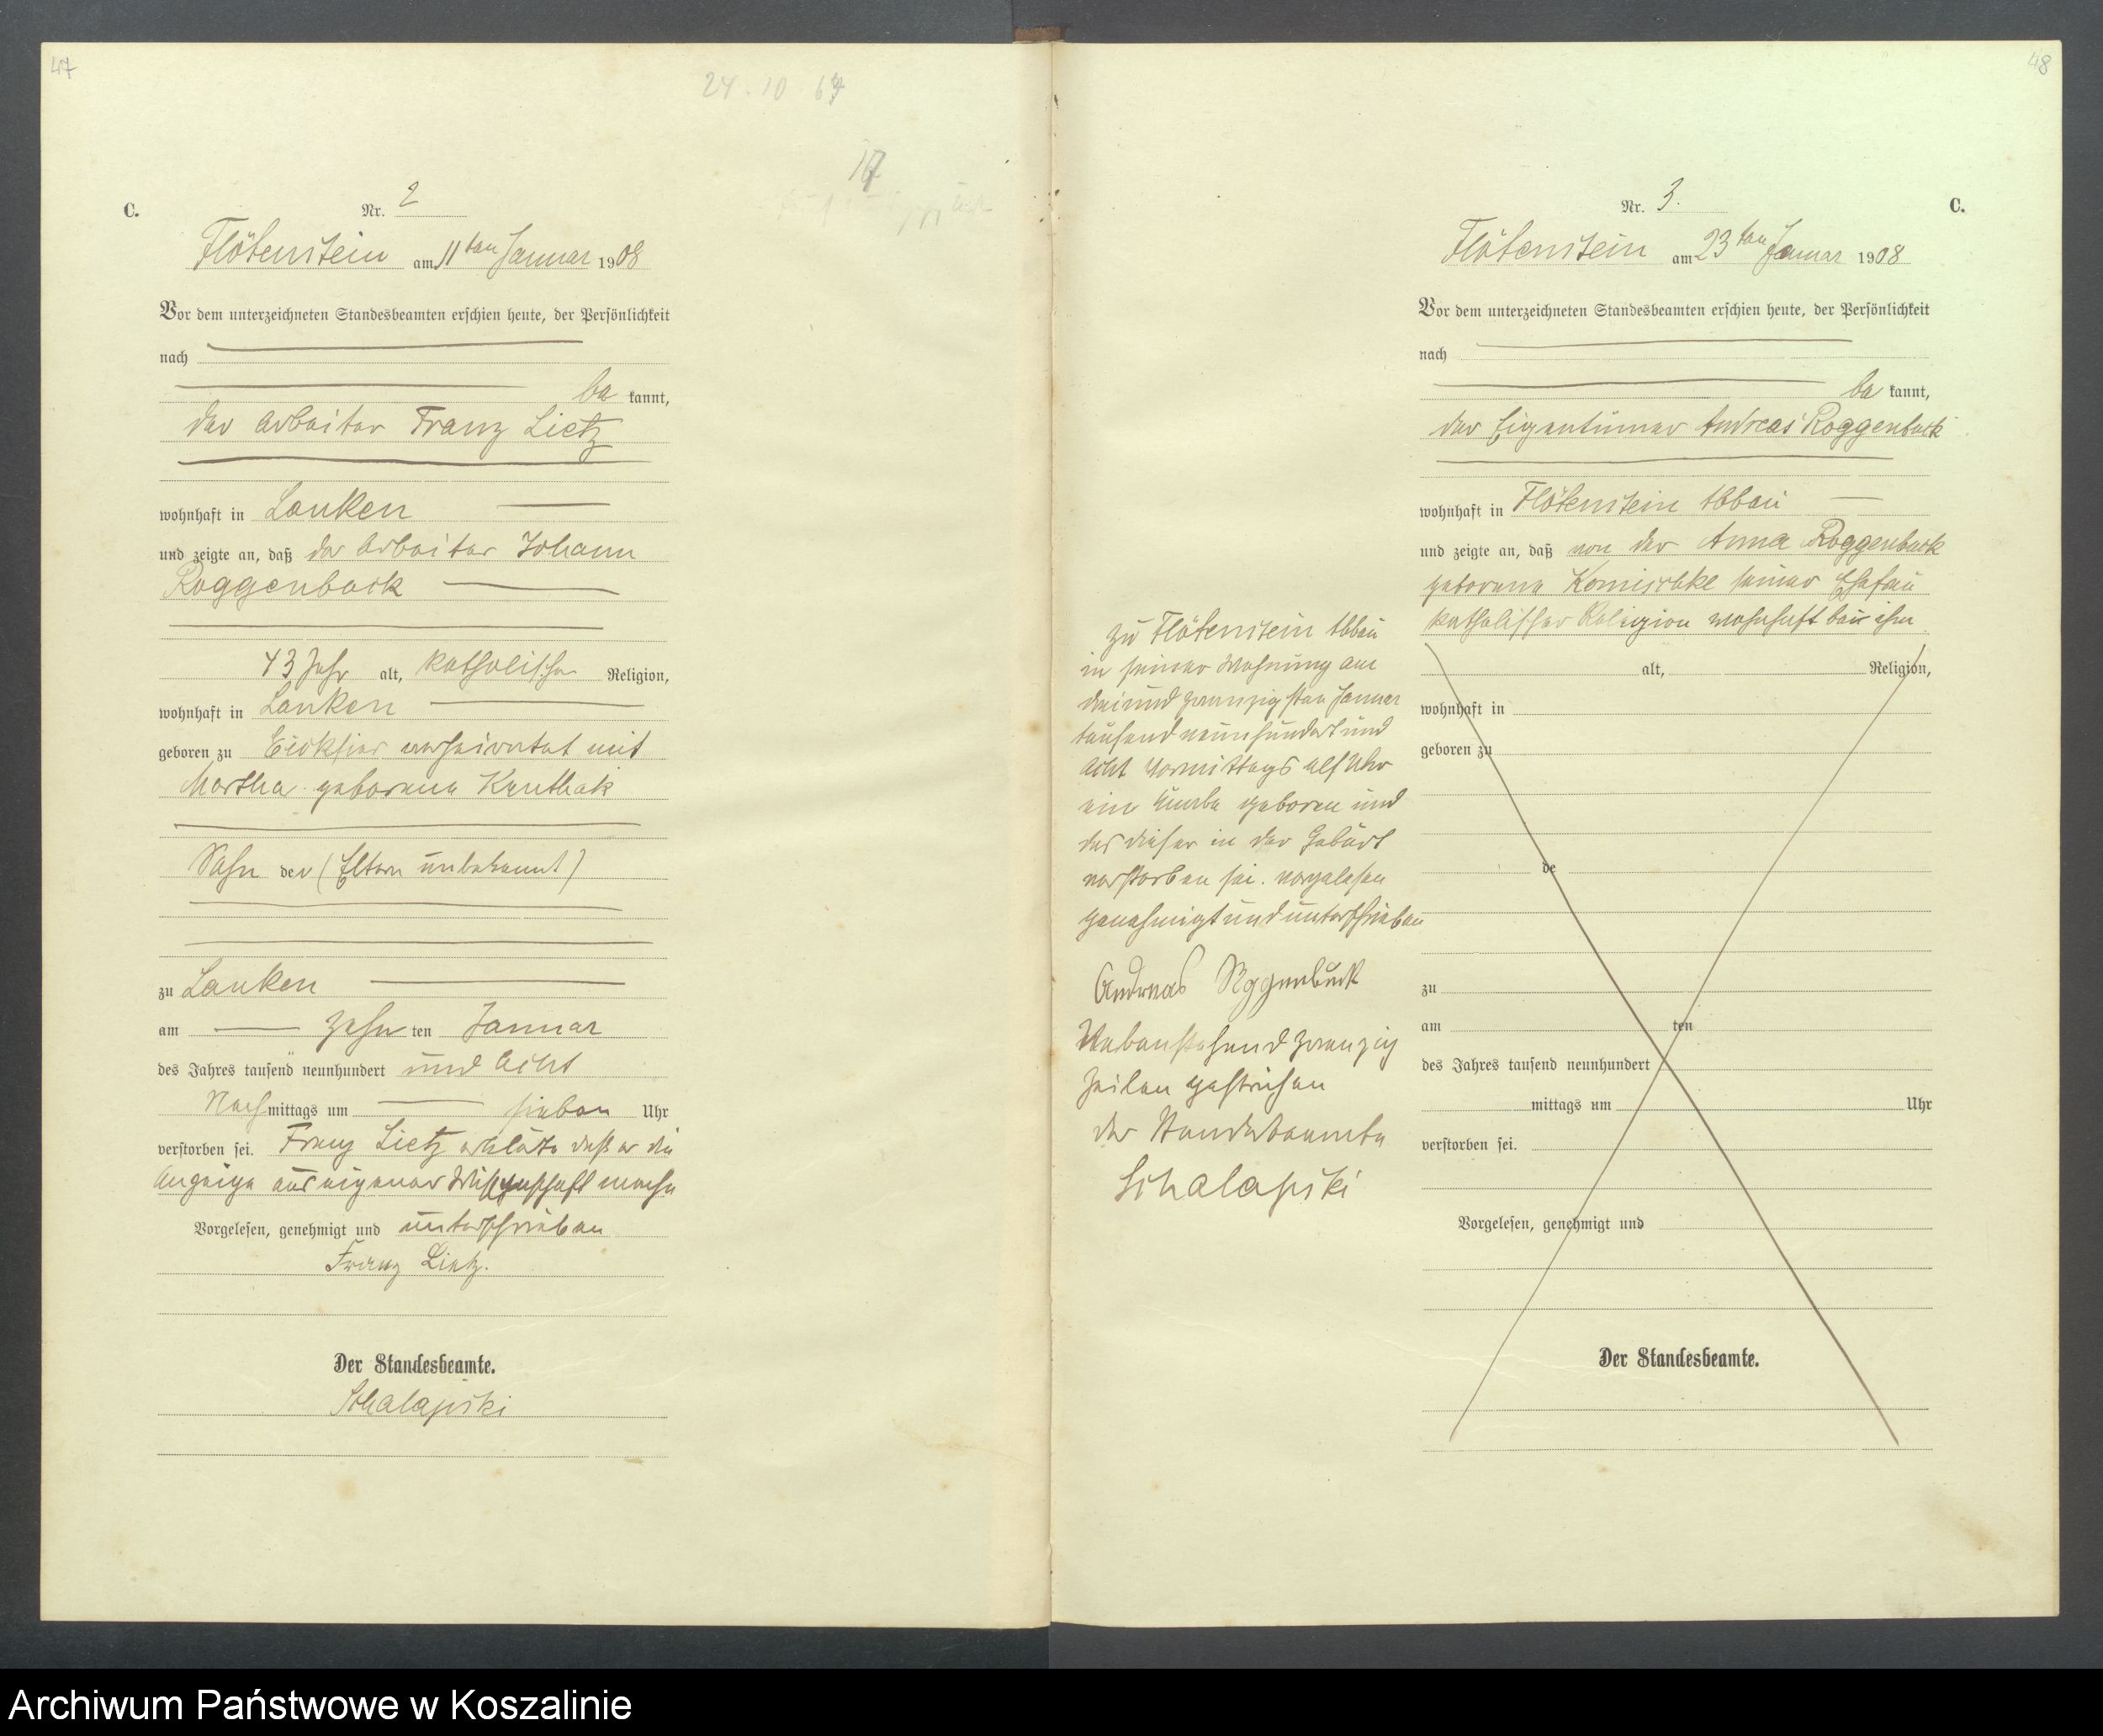 47
24.10.67
17
C.
Nr. 2
Flötenstein am 11ten Januar 1908
Vor dem unterzeichneten Standesbeamten erschien heute, der Persönlichkeit
nach
be kannt,
der Arbeiter Franz Lietz
wohnhaft in Lanken
und zeigte an, daß der Arbeiter Johann
Roggenbuck
43 Jahr alt, katholischer Religion,
wohnhaft in Lanken
geboren zu Eickfier verheiratet mit
Martha geborene
Sohn der (Eltern unbekannt)
zu Lanken
am zehn ten Januar
des Jahres tausend neunhundert und Acht
Nach mittags um sieben Uhr
verstorben sei. Franz Lietz erklärte daß er die
Anzeige aus eigener Wissenschaft mache
Vorgelesen, genehmigt und unterschrieben
Franz Lietz.
Der Standesbeamte.
Schalapski
48
C.
Nr. 3.
Flötenstein am 23ten Januar 1908
Vor dem unterzeichneten Standesbeamten erschien heute, der Persönlichkeit
nach
be kannt,
der Eigentümer Andreas Roggenbuck
wohnhaft in Flötenstein Abbau
und zeigte an, daß von der Anna Roggenbuck
geborene Konischke seiner Ehefrau
katholischer Religion wohnhaft bei ihm
zu Flötenstein Abbau
in seiner Wohnung am
dreiundzwanzigsten Januar
tausendneunhundertund
Acht Vormittags elf Uhr
ein Knabe geboren und
das dieser in der Geburt
verstorben sei. vorgelesen
genehmigt und unterschrieben
Andreas Roggenbuck
Nebenstehend zwanzig
Zeilen gestrichen
der Standesbeamte
Schalapski
alt, Religion,
wohnhaft in
geboren zu
de
zu
am ten
des Jahres tausend neunhundert
mittags um Uhr
verstorben sei.
Vorgelesen, genehmigt und
Der Standesbeamte.
Archiwum Państwowe w Koszalinie